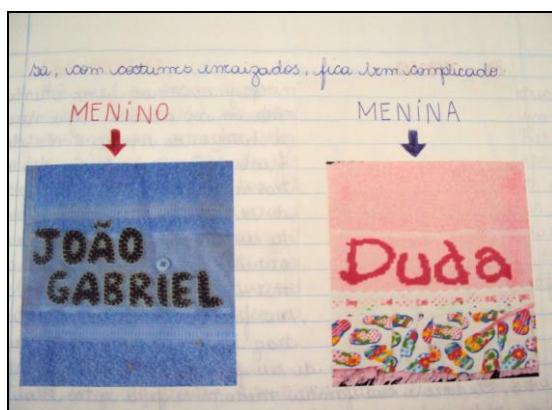 sa, com costumes enraizados, fica bem complicado.
MENINO MENINA
JOÃO Duda
GABRIEL